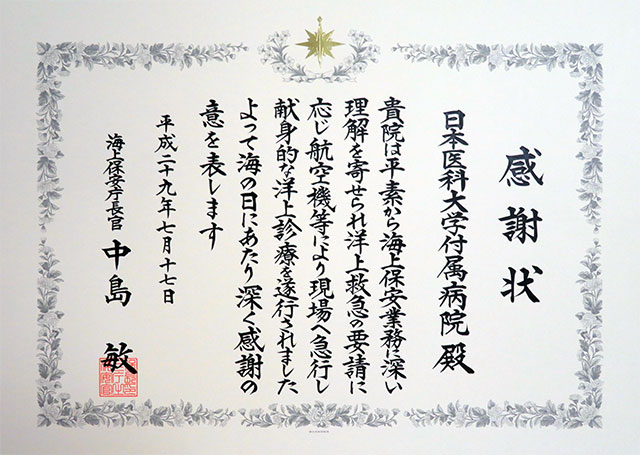 感謝状
日本医科大学付属病院 殿
貴院は平素から海上保安業務に深い
理解を寄せられ洋上救急の要請に
応じ航空機等により現場へ急行し
献身的な洋上診療を遂行されました
よって海の日にあたり深く感謝の
意を表します
平成二十九年七月十七日
海上保安庁長官 中島 敏